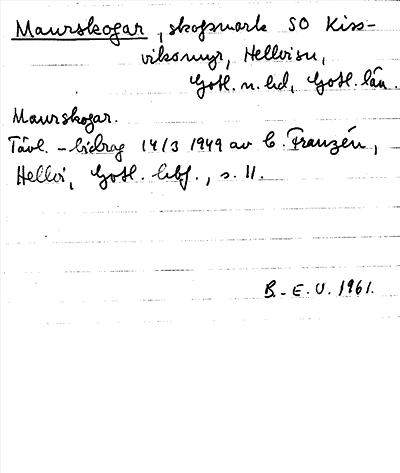 Maurskogar, skogsmark SO Kiss-
vikomyr, Hellvi sn,
Gotl. n. hd, Gotl. län.
Maurskogar.
Tävl. - bidrag 14/3 1949 av C. Franzén,
Hellvi, Gotl. hbf., s. 11.
B. - E. U. 1961.